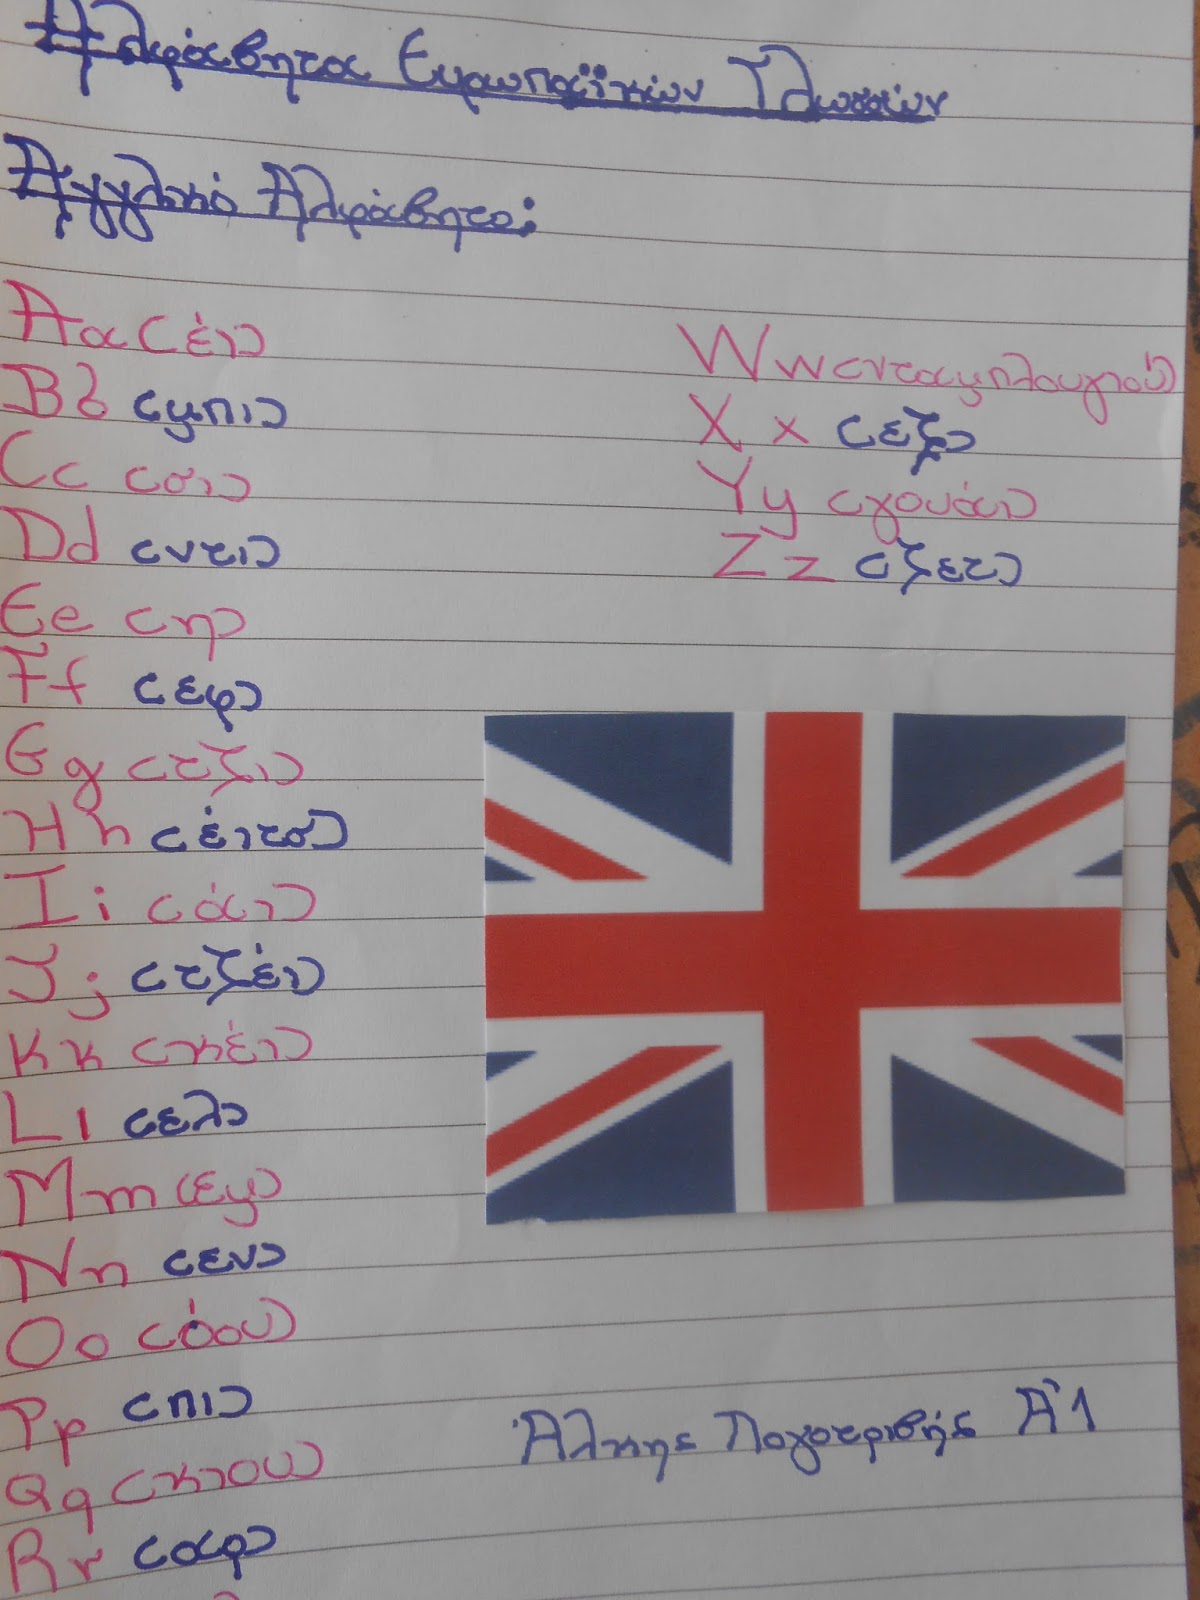 Αλφάβητος Ευρωπαϊκών Γλωσσών
Αγγλικό Αλφάβητο:
A α (έι)
B b (μπι)
C c (σι)
D d (ντι)
E e (η)
F f (εφ)
G g (τζι)
H h (έιτσ)
I i (άι)
J j (τζέι)
K k (κέι)
L l (ελ)
M m (εμ)
N n (εν)
O o (όου)
P p (πι)
Q q (κιου)
R r (αρ)
W w (νταμπλουγιού)
X x (εξ)
Y y (γουάι)
Z z (ζετ)
Άλκης Α'1